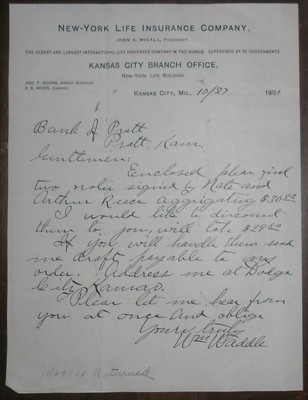 NEW-YORK LIFE INSURANCE COMPANY,
JOHN A. McCALL, PRESIDENT.
THE OLDEST AND LARGEST INTERNATIONAL LIFE INSURANCE COMPANY IN THE WORLD. SUPERVISED BY 82 GOVERNMENTS.
KANSAS CITY BRANCH OFFICE,
NEW-YORK LIFE BUILDING.
KANSAS CITY, MO., 10/27 1901
Bank of Pratt
Pratt, Kan.
Gentlemen:
Enclosed please find
two notes signed by Nate and
Arthur Rice aggregating
I would like to discount
them to you, will take
If you will handle them send
me draft payable to my
order. Address me at Dodge
City Kansas.
Please let me hear from
you at once and oblige
Yours truly
Waddle
Returned